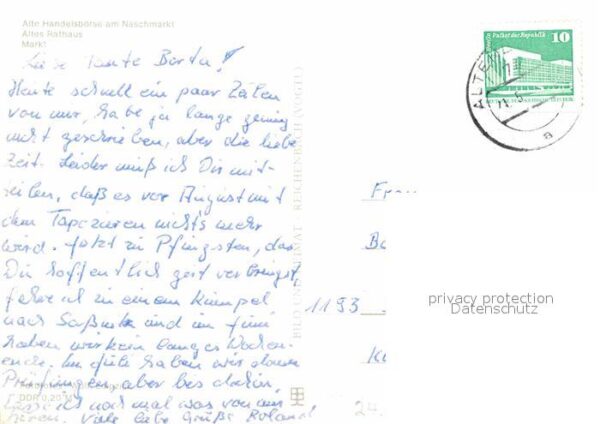 Alte Handelsbörse am Naschmarkt
Altes Rathaus
Markt
Liebe Tante Berta!
Heute schnell ein paar Zeilen
von mir, habe ja lange genug
nicht geschrieben, aber die liebe
Zeit. Leider muß ich Dir mit-
teilen, daß es vor August mit
dem Tapezieren nichts mehr
wird. Jetzt zu Pfingsten, das
Du hoffentlich gut verbringst
fahre ich zu einem Kumpel
nach Saßnitz und im Juni
haben wir kein langes Wochen-
ende. Im Juli haben wir dann
Prüfungen, aber bis dahin,
lasse ich noch mal was von mir
hören. Viele liebe Grüße Roland
DDR 0,20 M
BILD UND HEIMAT REICHENBACH (VOGTL)
Palast der Republik
10
ALTEN
11. 5
a
1193
24
privacy protection
Datenschutz